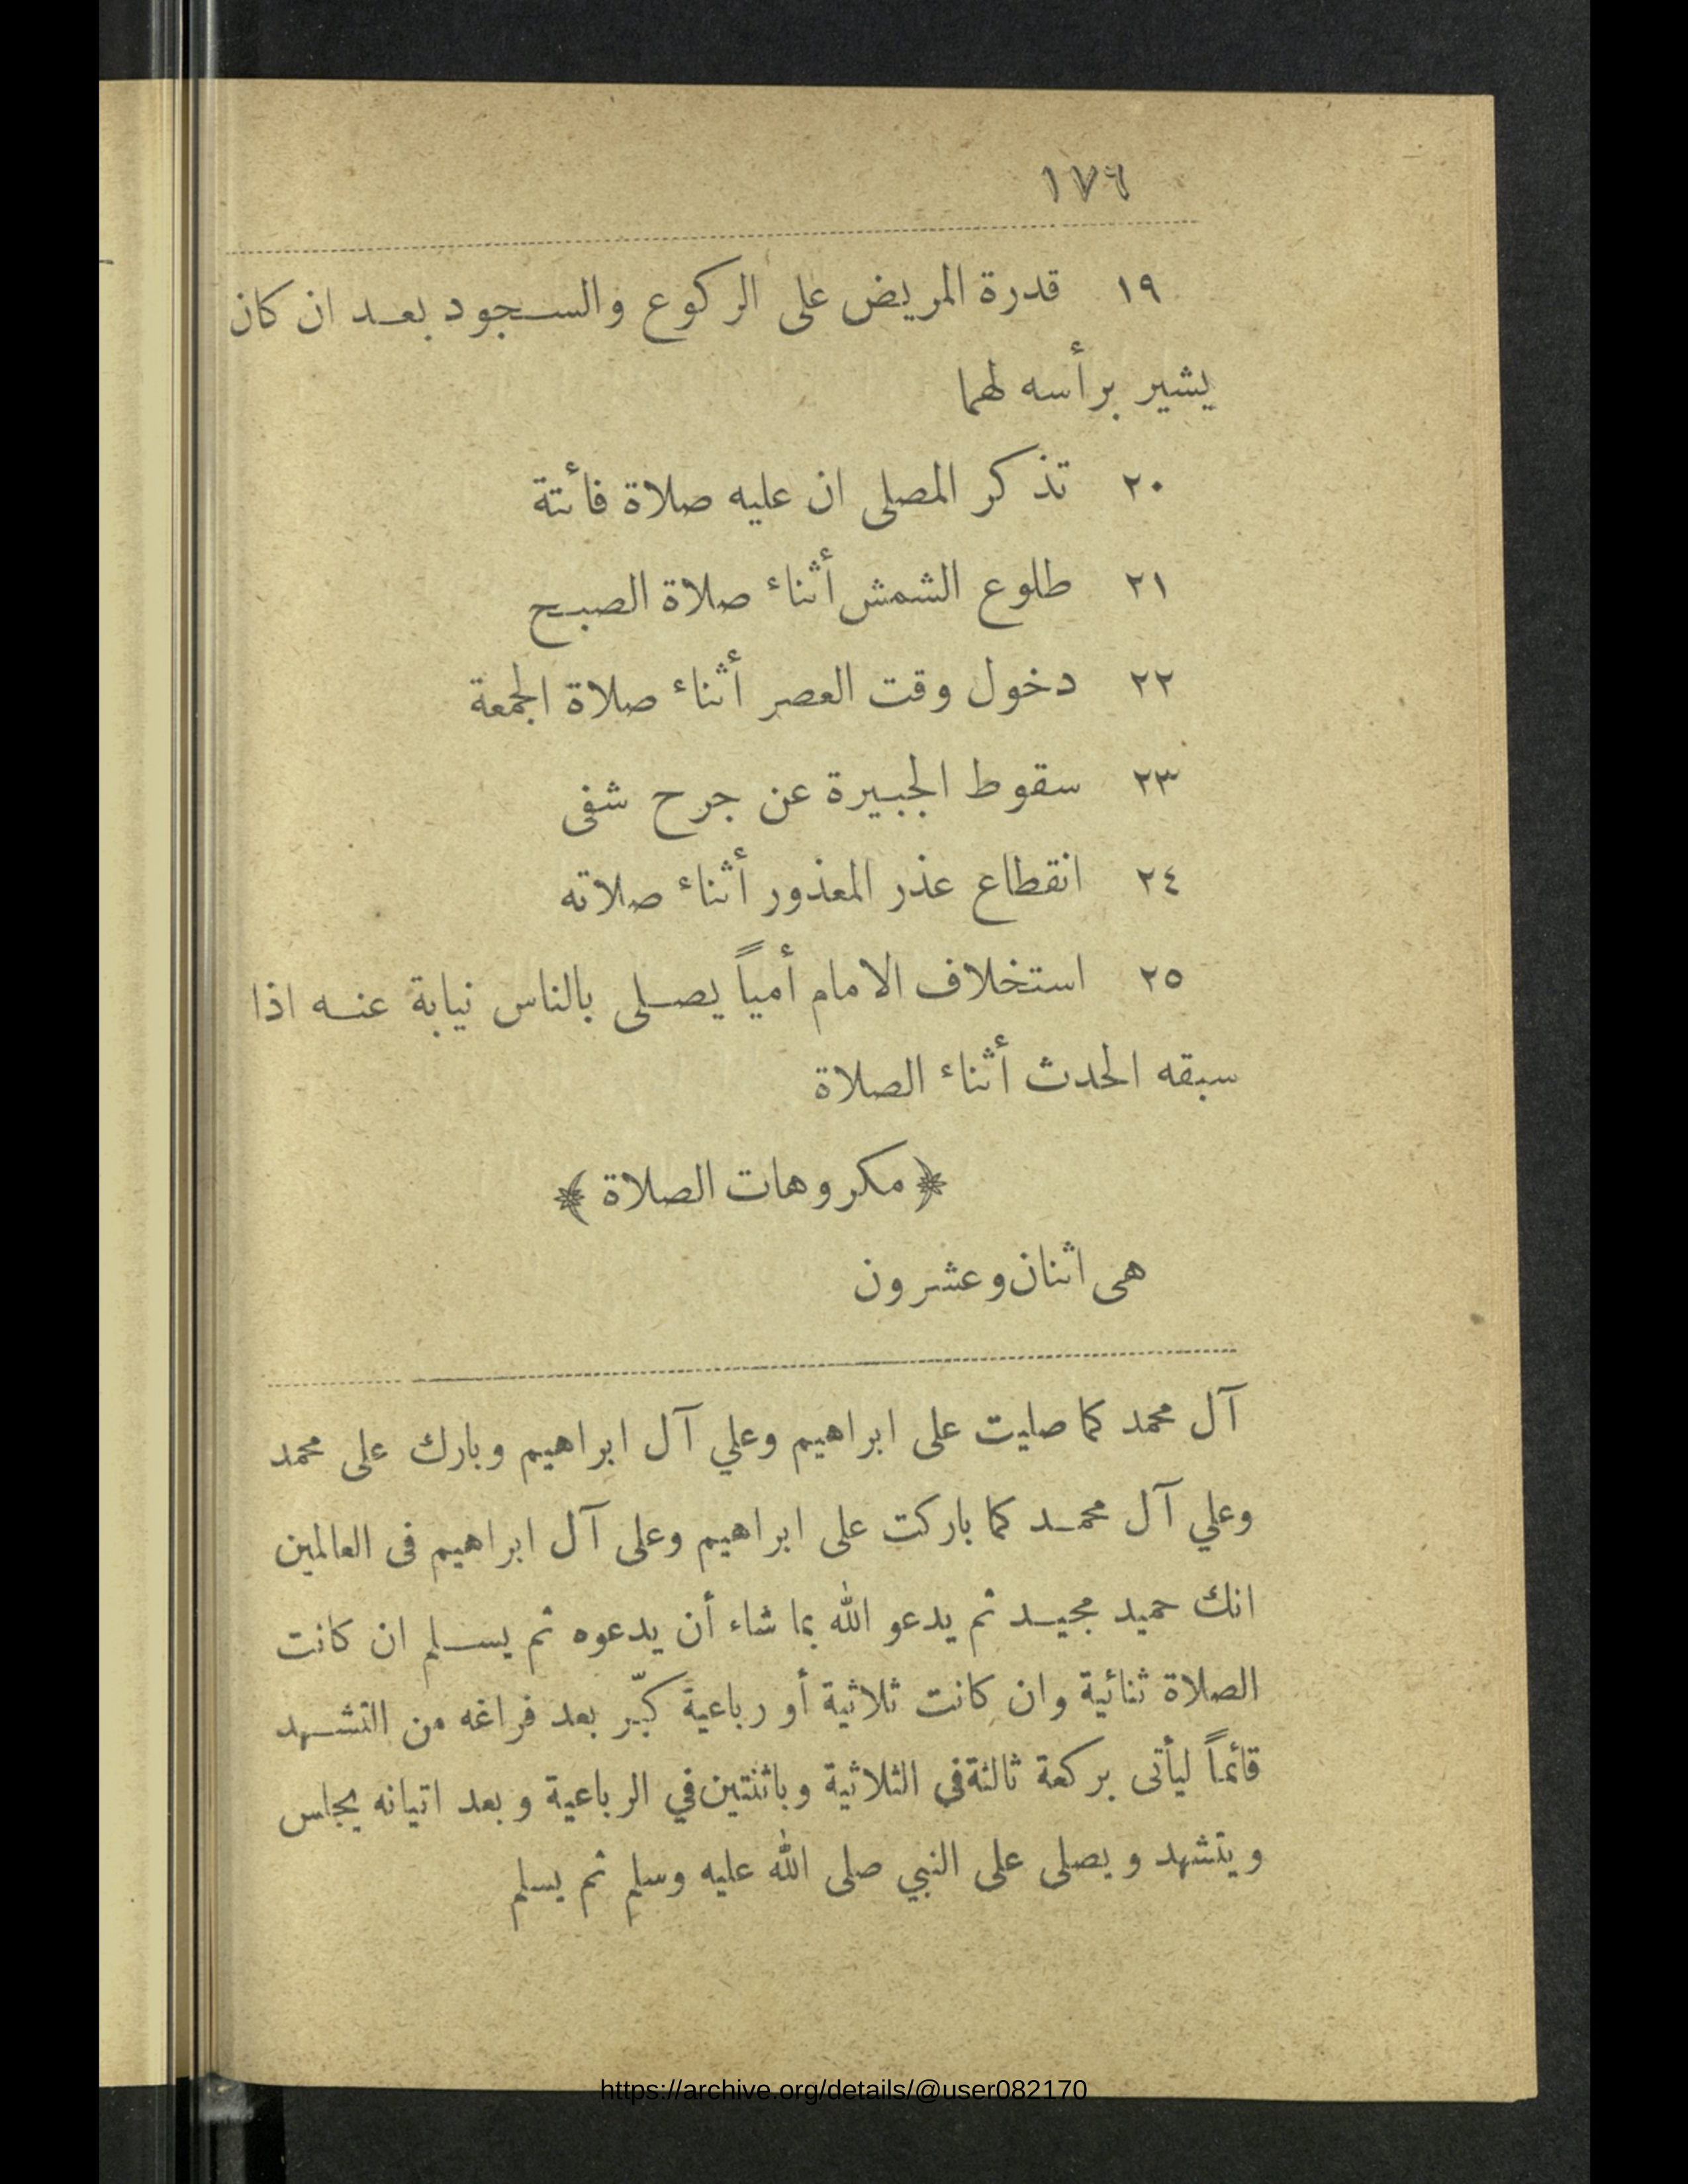 ١٧٦
١٩ قدرة المريض على الركوع والسجود بعد ان كان
يشير برأسه لهما
٢٠ تذكر المصلى ان عليه صلاة فأتتة
٢١ طلوع الشمش أثناء صلاة الصبح
٢٢ دخول وقت العصر أثناء صلاة الجمعة
٢٣ سقوط الجبيرة عن جرح شفى
٢٤ انقطاع عذر المعذور أثناء صلاته
٢٥ استخلاف الامام أمياً يصلى بالناس نيابة عنه اذا
سبقه الحدث أثناء الصلاة
﴿ مكروهات الصلاة ﴾
هى اثنان وعشرون
آل محمد كما صليت على ابراهيم وعلي آل ابراهيم وبارك على محمد
وعلي آل محمد كما باركت على ابراهيم وعلى آل ابراهيم فى العالمين
انك حميد مجيد ثم يدعو الله بما شاء أن يدعوه ثم يسلم ان كانت
الصلاة ثنائية وان كانت ثلاثية أو رباعية كبّر بعد فراغه من التشهد
قائماً ليأتى بركعة ثالثة في الثلاثية وباثنتين في الرباعية وبعد اتيانه يجلس
ويتشهد ويصلى على النبي صلى الله عليه وسلم ثم يسلم
https://archive.org/details/@user082170